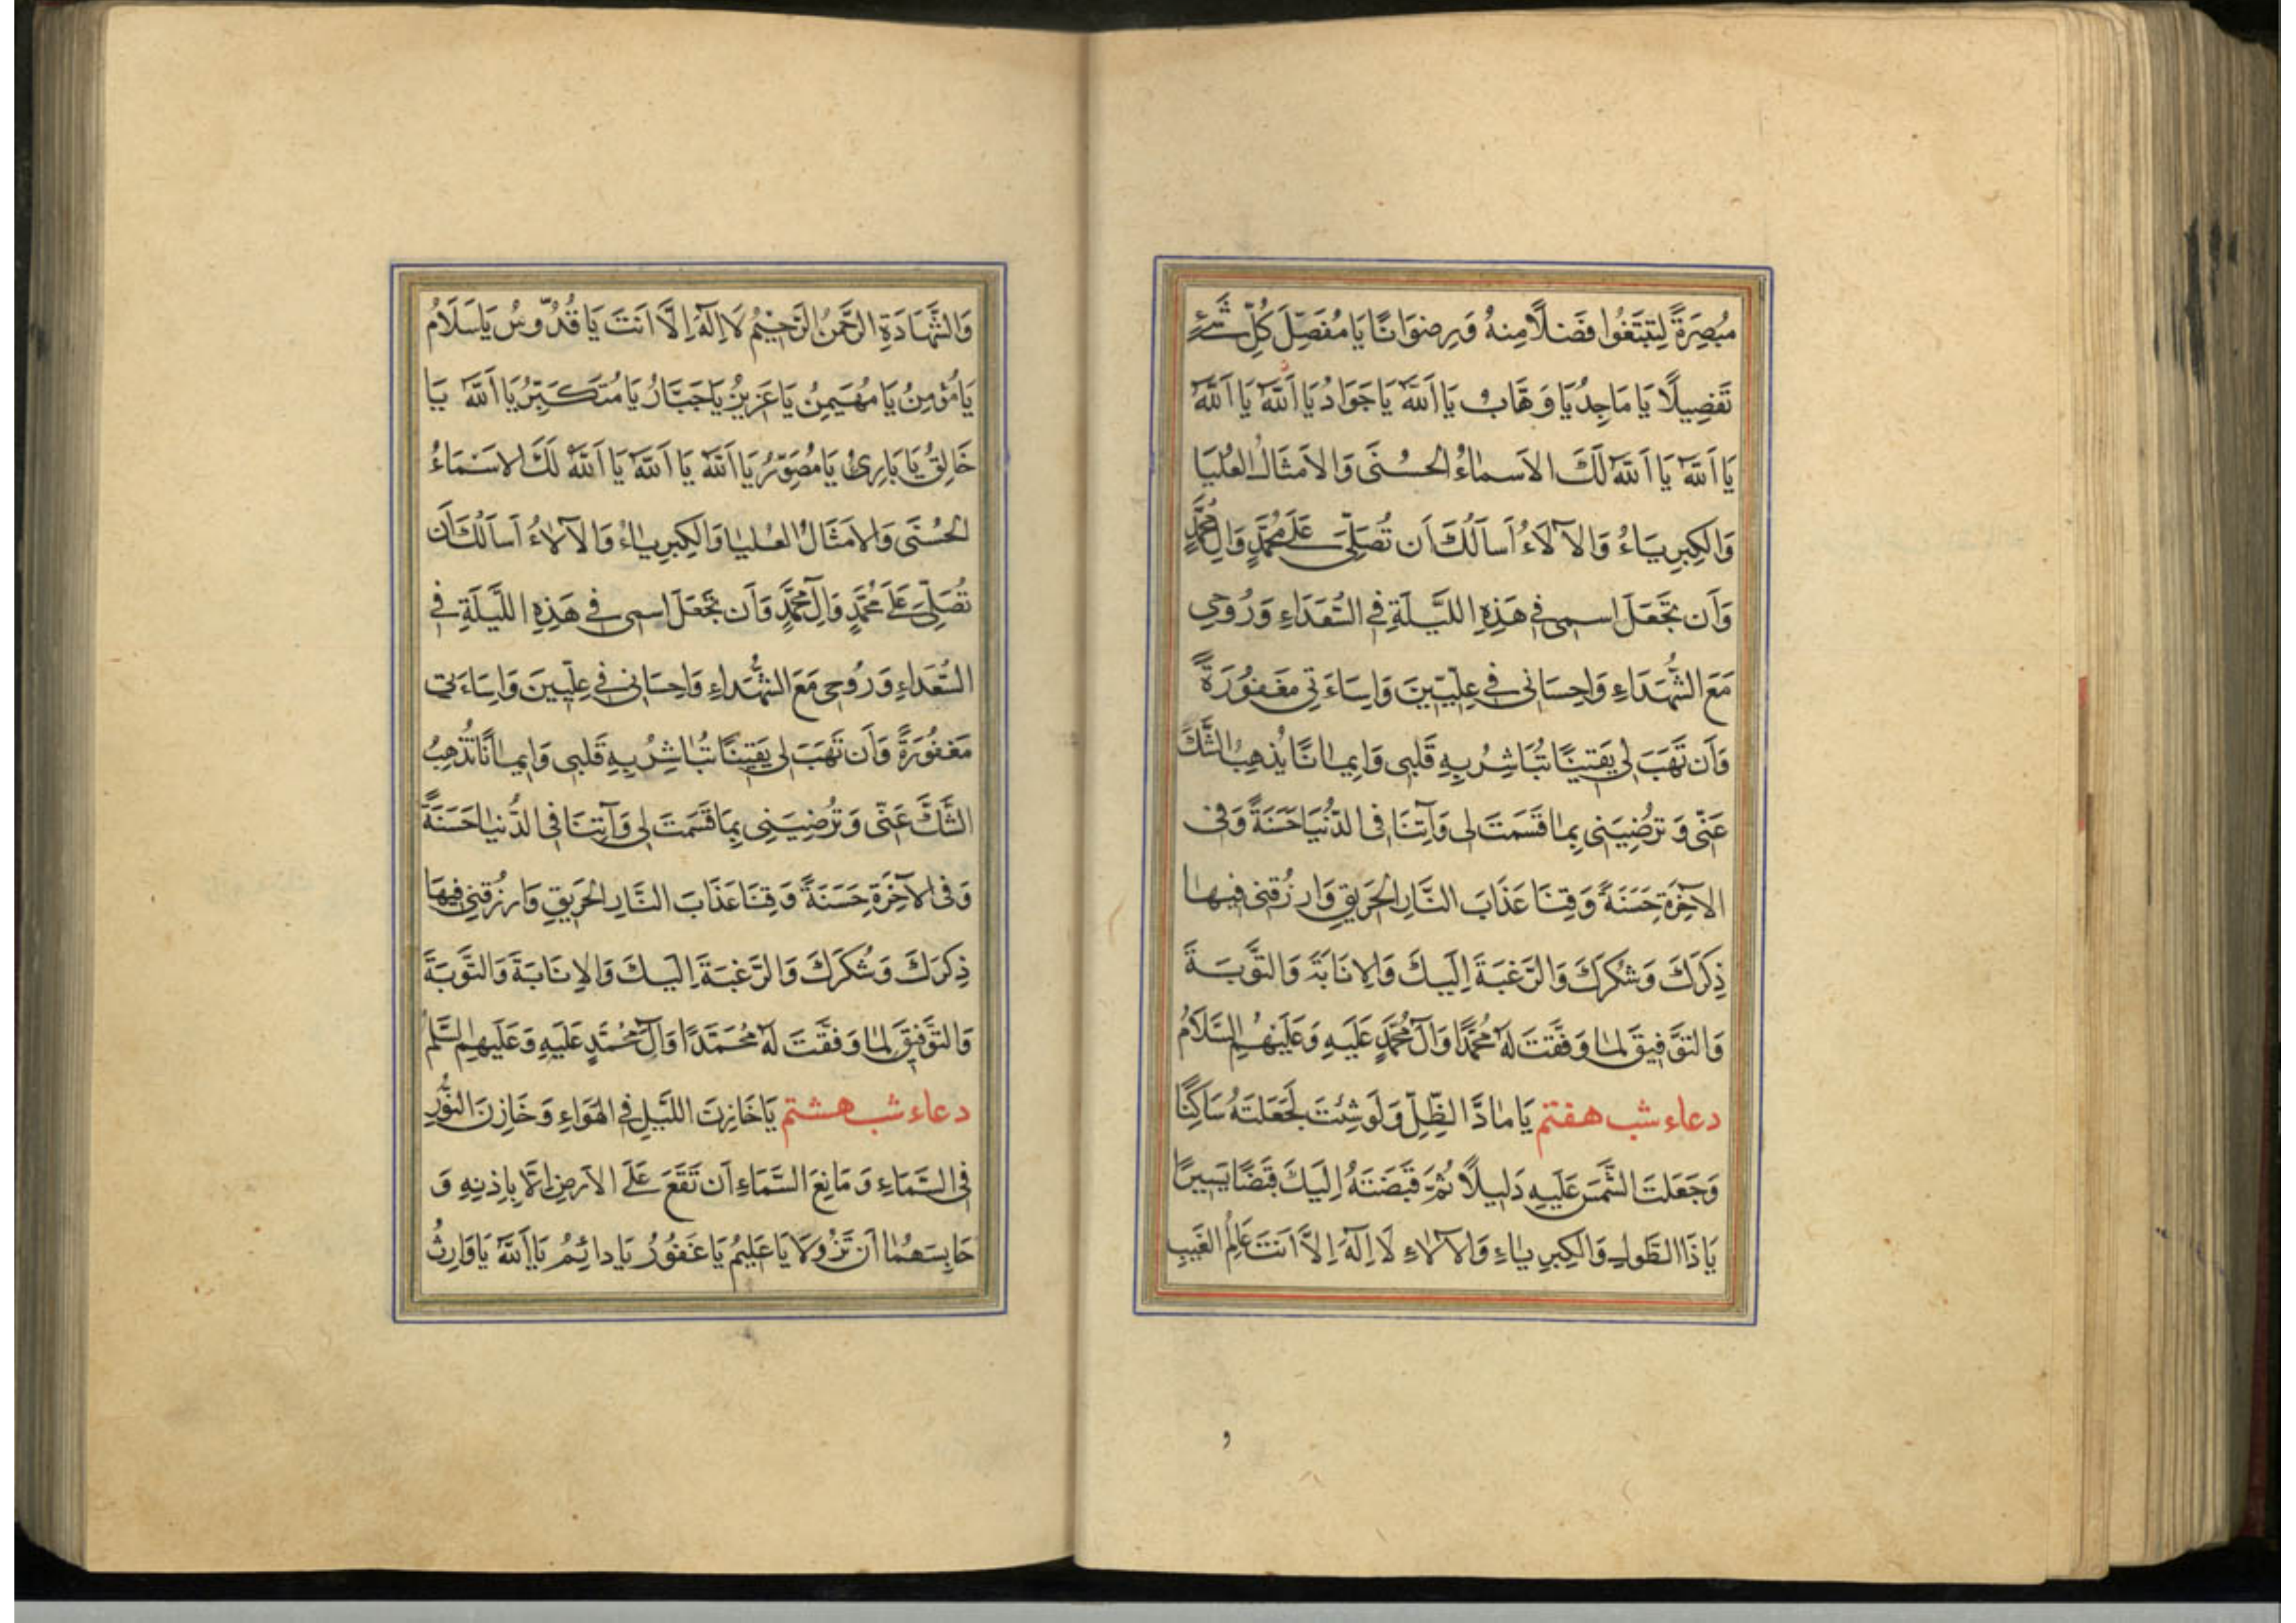 مُبْصِرَةً لِتَبْتَغُوا فَضْلًا مِنْهُ وَرِضْوَانًا يَا مُفَصِّلَ كُلِّ شَيْءٍ
تَفْصِيلًا يَا مَاجِدُ يَا وَهَّابُ يَا اَللّٰهُ يَا جَوَادُ يَا اَللّٰهُ يَا اَللّٰهُ
يَا اَللّٰهُ يَا اَللّٰهُ لَكَ الاَسْمَاءُ الْحُسْنَى وَالاَمْثَالُ الْعُلْيَا
وَالْكِبْرِيَاءُ وَالآلَاءُ اَسْاَلُكَ اَنْ تُصَلِّيَ عَلَى مُحَمَّدٍ وَآلِ مُحَمَّدٍ
وَاَنْ تَجْعَلَ اسْمِي فِي هَذِهِ اللَّيْلَةِ فِي السُّعَدَاءِ وَرُوحِي
مَعَ الشُّهَدَاءِ وَاِحْسَانِي فِي عِلِّيِّينَ وَاِسَاءَتِي مَغْفُورَةً
وَاَنْ تَهَبَ لِي يَقِينًا تُبَاشِرُ بِهِ قَلْبِي وَاِيمَانًا يُذْهِبُ الشَّكَّ
عَنِّي وَتُرْضِيَنِي بِمَا قَسَمْتَ لِي وَآتِنَا فِي الدُّنْيَا حَسَنَةً وَفِي
الآخِرَةِ حَسَنَةً وَقِنَا عَذَابَ النَّارِ الْحَرِيقِ وَارْزُقْنِي فِيهَا
ذِكْرَكَ وَشُكْرَكَ وَالرَّغْبَةَ اِلَيْكَ وَالاِنَابَةَ وَالتَّوْبَةَ
وَالتَّوْفِيقَ لِمَا وَفَّقْتَ لَهُ مُحَمَّدًا وَآلَ مُحَمَّدٍ عَلَيْهِ وَعَلَيْهِمُ السَّلَامُ
دعاء شب هفتم يَا مَادَّ الظِّلِّ وَلَوْ شِئْتَ لَجَعَلْتَهُ سَاكِنًا
وَجَعَلْتَ الشَّمْسَ عَلَيْهِ دَلِيلًا ثُمَّ قَبَضْتَهُ اِلَيْكَ قَبْضًا يَسِيرًا
يَا ذَا الطَّوْلِ وَالْكِبْرِيَاءِ وَالآلَاءِ لَا اِلَهَ اِلَّا اَنْتَ عَالِمُ الْغَيْبِ
و
وَالشَّهَادَةِ الرَّحْمَنُ الرَّحِيمُ لَا اِلَهَ اِلَّا اَنْتَ يَا قُدُّوسُ يَا سَلَامُ
يَا مُؤْمِنُ يَا مُهَيْمِنُ يَا عَزِيزُ يَا جَبَّارُ يَا مُتَكَبِّرُ يَا اَللّٰهُ يَا
خَالِقُ يَا بَارِئُ يَا مُصَوِّرُ يَا اَللّٰهُ يَا اَللّٰهُ يَا اَللّٰهُ لَكَ الاَسْمَاءُ
الْحُسْنَى وَالاَمْثَالُ الْعُلْيَا وَالْكِبْرِيَاءُ وَالآلَاءُ اَسْاَلُكَ اَنْ
تُصَلِّيَ عَلَى مُحَمَّدٍ وَآلِ مُحَمَّدٍ وَاَنْ تَجْعَلَ اسْمِي فِي هَذِهِ اللَّيْلَةِ فِي
السُّعَدَاءِ وَرُوحِي مَعَ الشُّهَدَاءِ وَاِحْسَانِي فِي عِلِّيِّينَ وَاِسَاءَتِي
مَغْفُورَةً وَاَنْ تَهَبَ لِي يَقِينًا تُبَاشِرُ بِهِ قَلْبِي وَاِيمَانًا تُذْهِبُ
الشَّكَّ عَنِّي وَتُرْضِيَنِي بِمَا قَسَمْتَ لِي وَآتِنَا فِي الدُّنْيَا حَسَنَةً
وَفِي الآخِرَةِ حَسَنَةً وَقِنَا عَذَابَ النَّارِ الْحَرِيقِ وَارْزُقْنِي فِيهَا
ذِكْرَكَ وَشُكْرَكَ وَالرَّغْبَةَ اِلَيْكَ وَالاِنَابَةَ وَالتَّوْبَةَ
وَالتَّوْفِيقَ لِمَا وَفَّقْتَ لَهُ مُحَمَّدًا وَآلَ مُحَمَّدٍ عَلَيْهِ وَعَلَيْهِمُ السَّلَمُ
دعاء شب هشتم يَا خَازِنَ اللَّيْلِ فِي الْهَوَاءِ وَخَازِنَ النُّورِ
فِي السَّمَاءِ وَمَانِعَ السَّمَاءِ اَنْ تَقَعَ عَلَى الاَرْضِ اِلَّا بِاِذْنِهِ وَ
حَابِسَهُمَا اَنْ تَزُولَا يَا عَلِيمُ يَا غَفُورُ يَا دَائِمُ يَا اَللّٰهُ يَا وَارِثُ